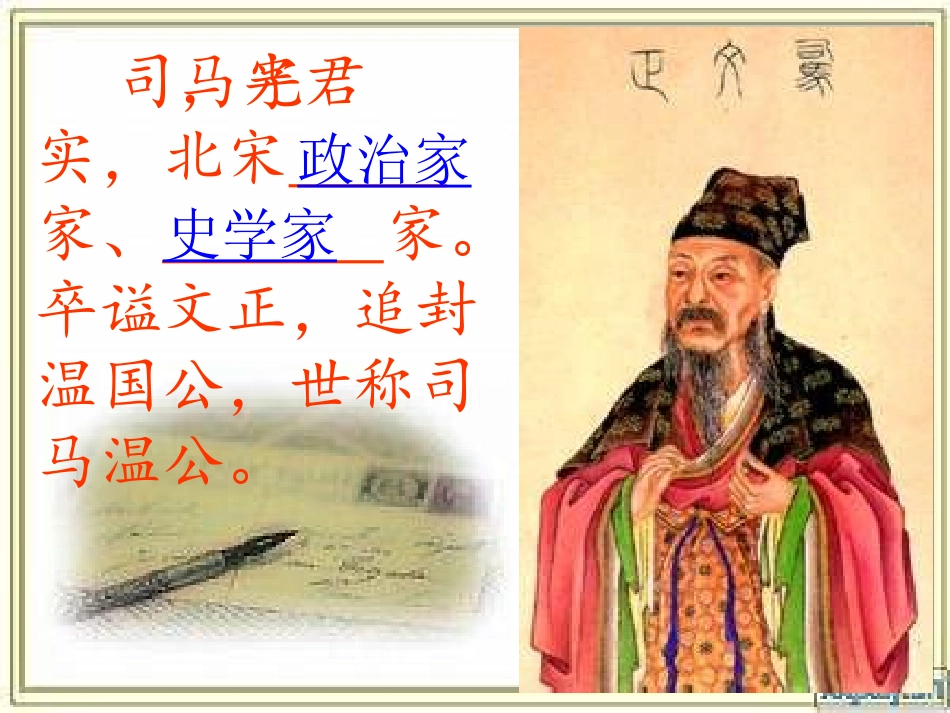 司马光，字君
实，北宋政治家
家、史学家 家。
卒谥文正，追封
温国公，世称司
马温公。
司馬文正